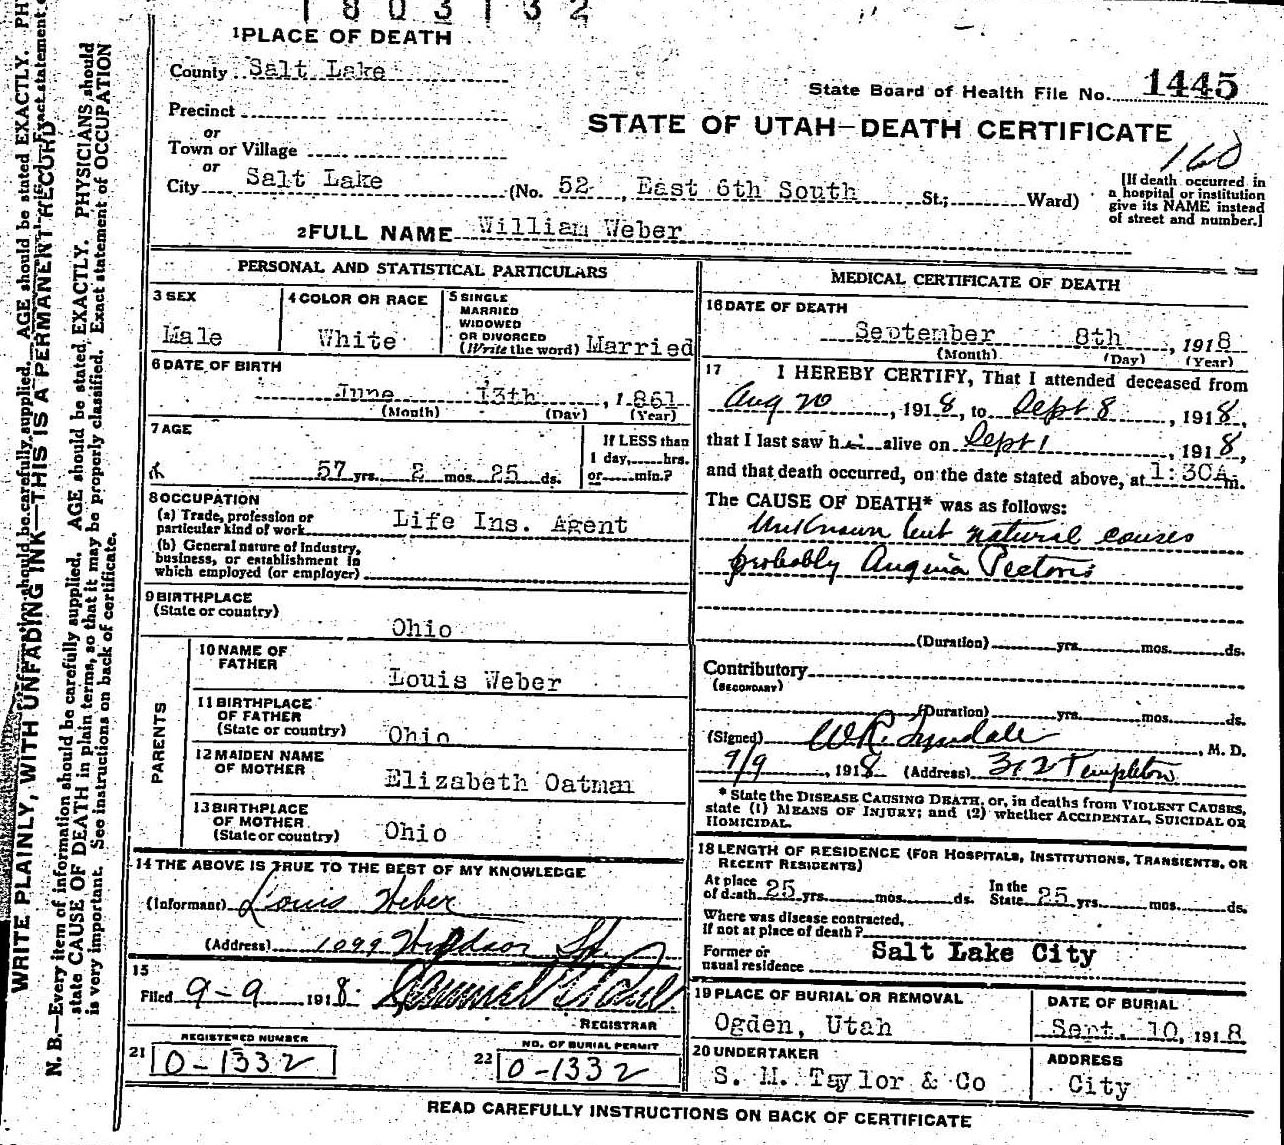 1803132
1 PLACE OF DEATH
County Salt Lake
State Board of Health File No. 1445
Precinct
or
STATE OF UTAH—DEATH CERTIFICATE
160
Town or Village
or
City Salt Lake (No. 52 East 6th South St.; Ward)
[If death occurred in
a hospital or institution
give its NAME instead
of street and number.]
2 FULL NAME William Weber
PERSONAL AND STATISTICAL PARTICULARS
3 SEX
Male
4 COLOR OR RACE
White
5 SINGLE
MARRIED
WIDOWED
OR DIVORCED
(Write the word) Married
6 DATE OF BIRTH
June 13th, 1861
(Month) (Day) (Year)
7 AGE
57 yrs. 2 mos. 25 ds.
If LESS than
1 day, hrs.
or min.?
8 OCCUPATION
(a) Trade, profession or
particular kind of work Life Ins. Agent
(b) General nature of Industry,
business, or establishment in
which employed (or employer)
9 BIRTHPLACE
(State or country)
Ohio
PARENTS
10 NAME OF
FATHER
Louis Weber
11 BIRTHPLACE
OF FATHER
(State or country) Ohio
12 MAIDEN NAME
OF MOTHER
Elizabeth Oatman
13 BIRTHPLACE
OF MOTHER
(State or country) Ohio
14 THE ABOVE IS TRUE TO THE BEST OF MY KNOWLEDGE
(Informant) Louis Weber
(Address) 1099 Windsor St.
15
Filed 9-9 1918.
REGISTRAR
REGISTERED NUMBER
21 0-1332
NO. OF BURIAL PERMIT
22 0-1332
MEDICAL CERTIFICATE OF DEATH
16 DATE OF DEATH
September 8th, 1918
(Month) (Day) (Year)
17 I HEREBY CERTIFY, That I attended deceased from
Aug 20, 1918, to Sept 8, 1918,
that I last saw him alive on Sept 1, 1918,
and that death occurred, on the date stated above, at 1:30A m.
The CAUSE OF DEATH* was as follows:
Unknown but natural causes
probably Anguia Pectoris
(Duration) yrs. mos. ds.
Contributory
(SECONDARY)
(Duration) yrs. mos. ds.
(Signed) W.R. Tyndale, M. D.
9/9, 1918 (Address) 312 Templeton
* State the DISEASE CAUSING DEATH, or, in deaths from VIOLENT CAUSES,
state (1) MEANS OF INJURY; and (2) whether ACCIDENTAL, SUICIDAL OR
HOMICIDAL.
18 LENGTH OF RESIDENCE (FOR HOSPITALS, INSTITUTIONS, TRANSIENTS, OR
RECENT RESIDENTS)
At place
of death 25 yrs. mos. ds.
In the
State 25 yrs. mos. ds.
Where was disease contracted,
if not at place of death?
Former or
usual residence Salt Lake City
19 PLACE OF BURIAL OR REMOVAL
Ogden, Utah
DATE OF BURIAL
Sept. 10, 1918
20 UNDERTAKER
S. M. Taylor & Co
ADDRESS
City
READ CAREFULLY INSTRUCTIONS ON BACK OF CERTIFICATE
WRITE PLAINLY, WITH UNFADING INK—THIS IS A PERMANENT RECORD
N. B.—Every item of information should be carefully supplied. AGE should be stated EXACTLY. PHYSICIANS should
state CAUSE OF DEATH in plain terms, so that it may be properly classified. Exact statement of OCCUPATION
is very important. See instructions on back of certificate.